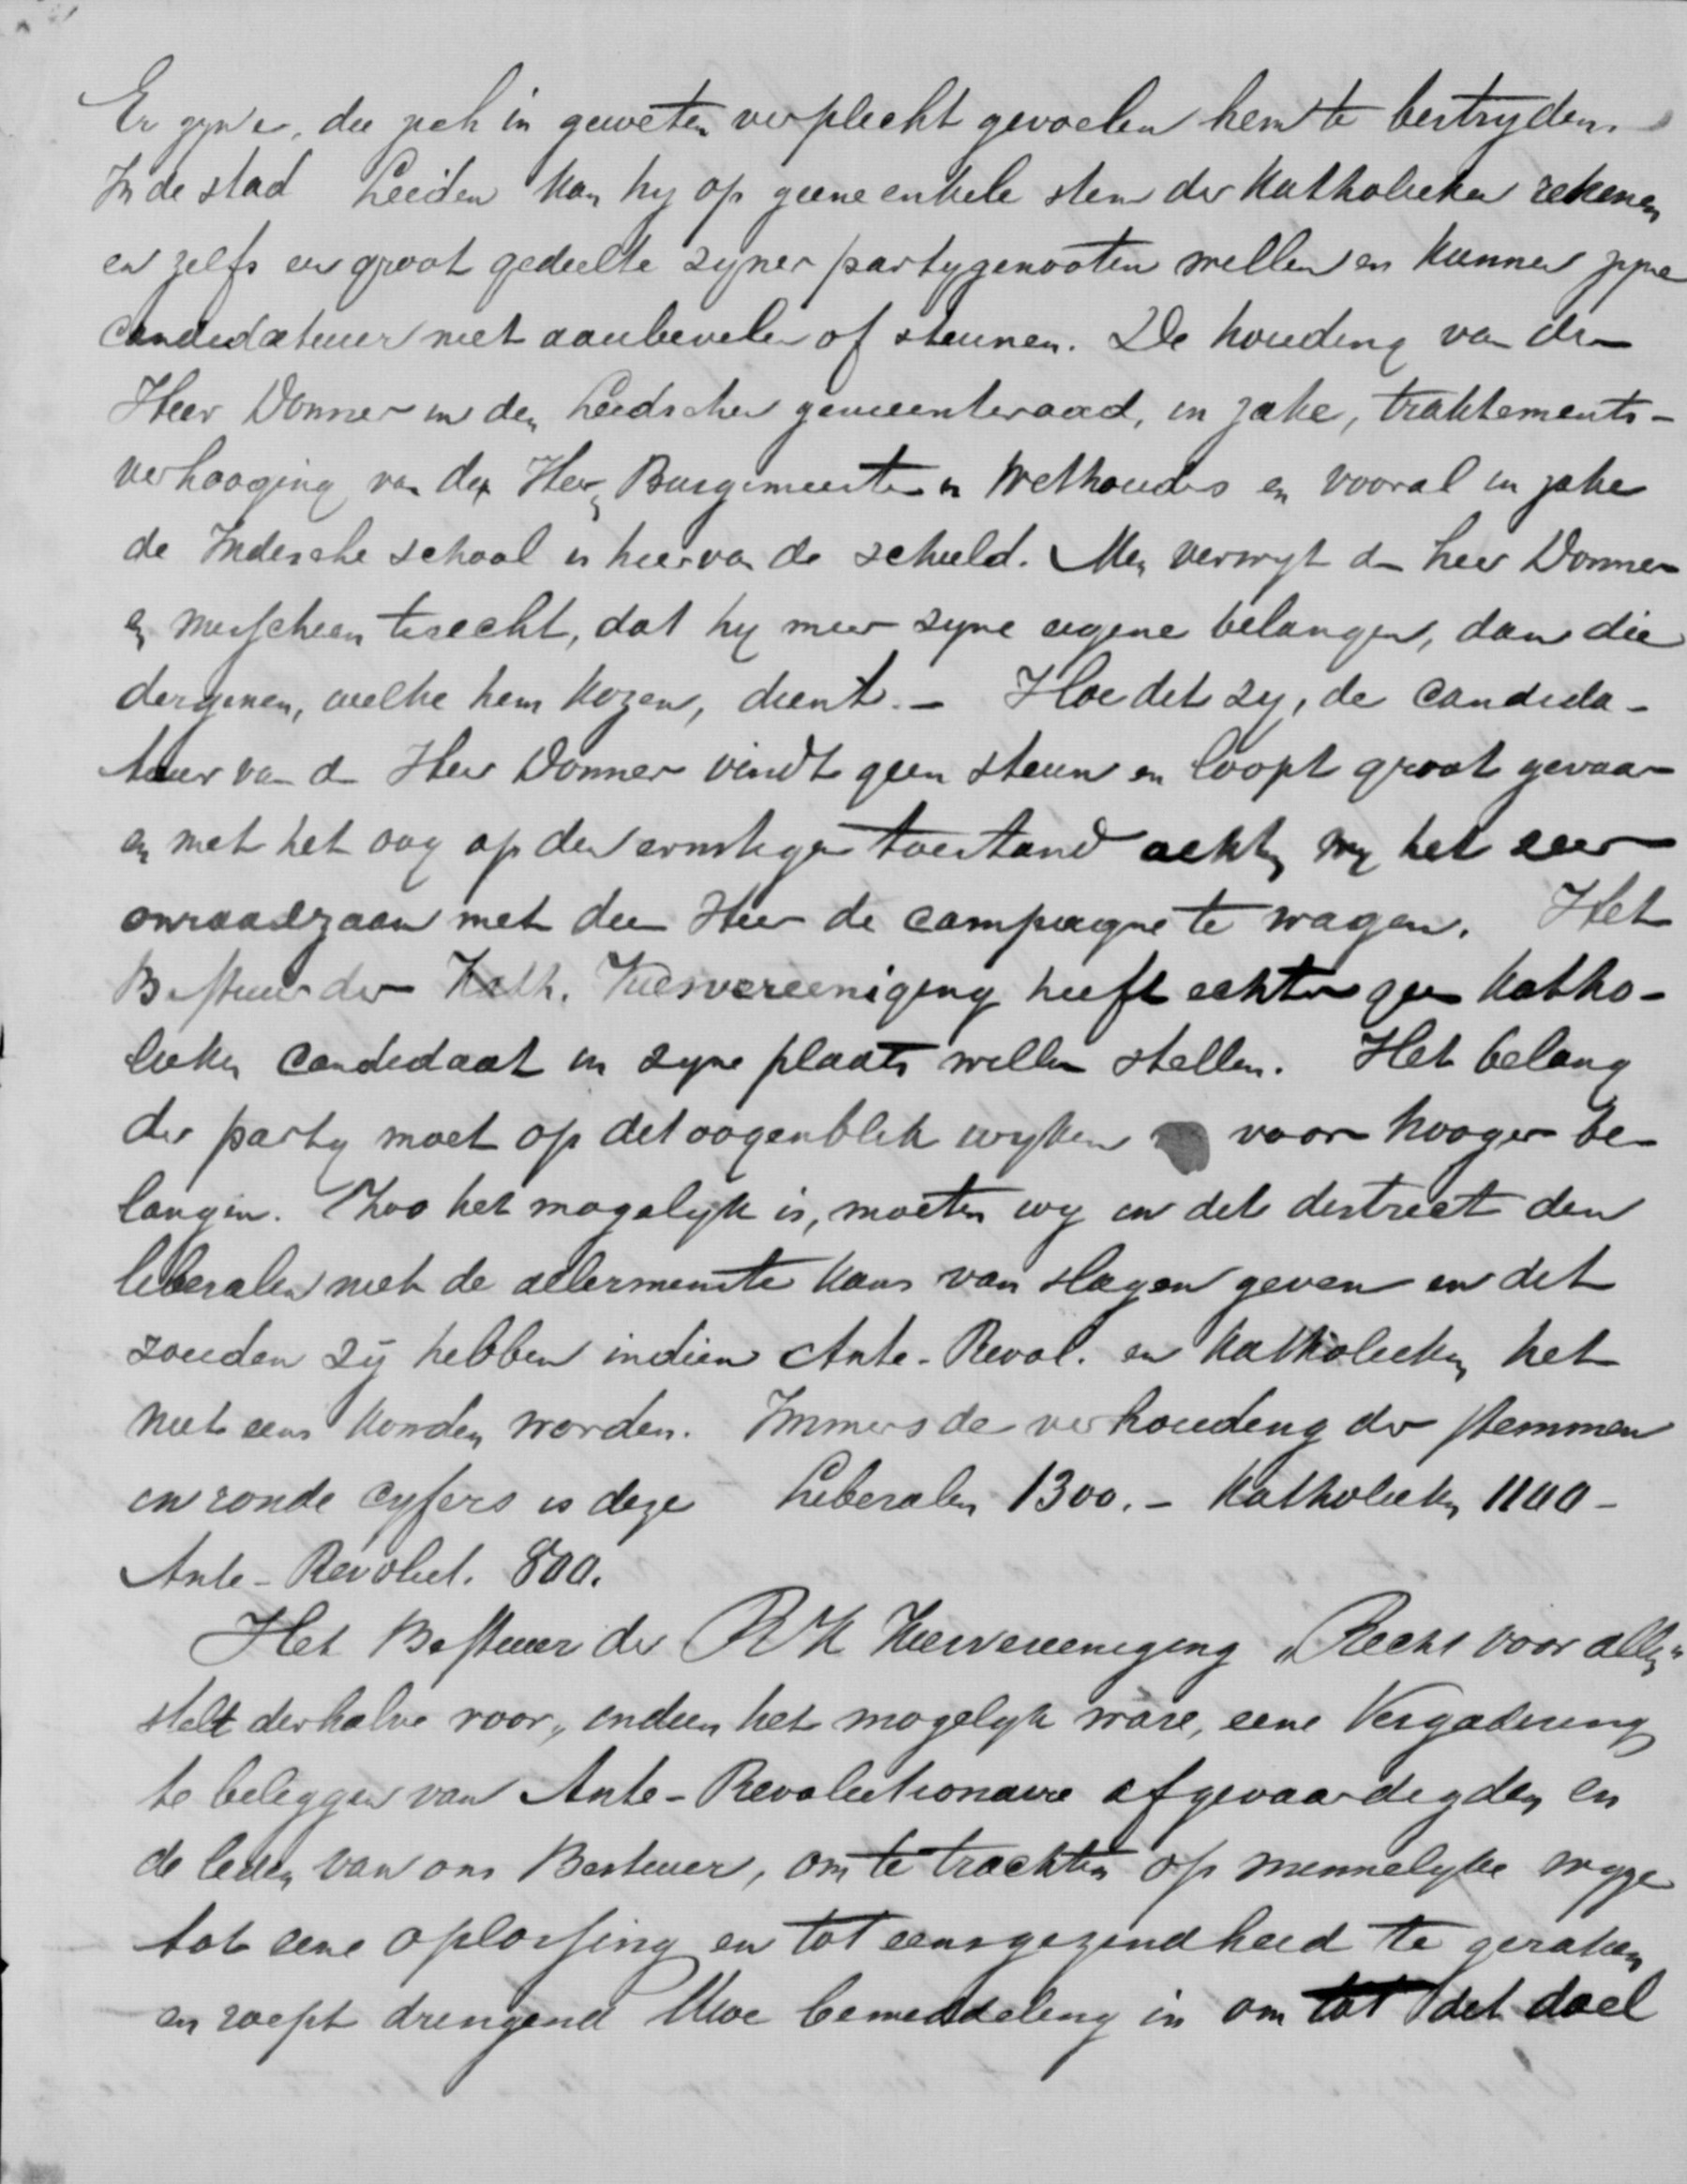 Er zyn er, die zich in geweten verplicht gevoelen hem te bestryden.
In de stad Leiden kan hy op geene enkele stem der Katholieken rekenen
en zelfs een groot gedeelte zyner partygenooten willen en kunnen zyne
candidatuur niet aanbevelen of steunen. De houding van den
Heer Donner in den Leidschen gemeenteraad, in zake, traktements-
verhooging van den Heer Burgemeester en Wethouders en vooral in zake
de Indische school is hiervan de schuld. Men verwyt den heer Donner
en misschien terecht, dat hy meer zyne eigene belangen, dan die
dergenen, welke hem kozen, dient. - Hoe dit zy, de candida-
tuur van den Heer Donner vindt geen steun en loopt groot gevaar
en met het oog op den ernstigen toestand achten wy het zeer
onraadzaam met dien Heer de campagne te wagen. Het
Bestuur der Kath. Kiesvereeniging heeft echter geen Katho-
lieken candidaat in zyne plaats willen stellen. Het belang
der party moet op dit oogenblik wyken voor hooger be-
langen. Zoo het mogelyk is, moeten wy in dit district den
liberalen niet de allerminste kans van slagen geven en dit
zouden zij hebben indien Anti-Revol. en Katholieken het
niet eens konden worden. Immers de verhouding der stemmen
in ronde cyfers is deze Liberalen 1300. - Katholieken 1100 -
Anti-Revolut. 800.
Het Bestuur der RK Kiesvereeniging „Recht voor allen"
stelt derhalve voor, indien het mogelyk ware, eene Vergadering
te beleggen van Anti-Revolutionaire afgevaardigden en
de leden van ons Bestuur, om te trachten op minnelyke wyze
tot eene oplossing en tot eensgezindheid te geraken
en roept dringend Uwe bemiddeling in om tot dit doel